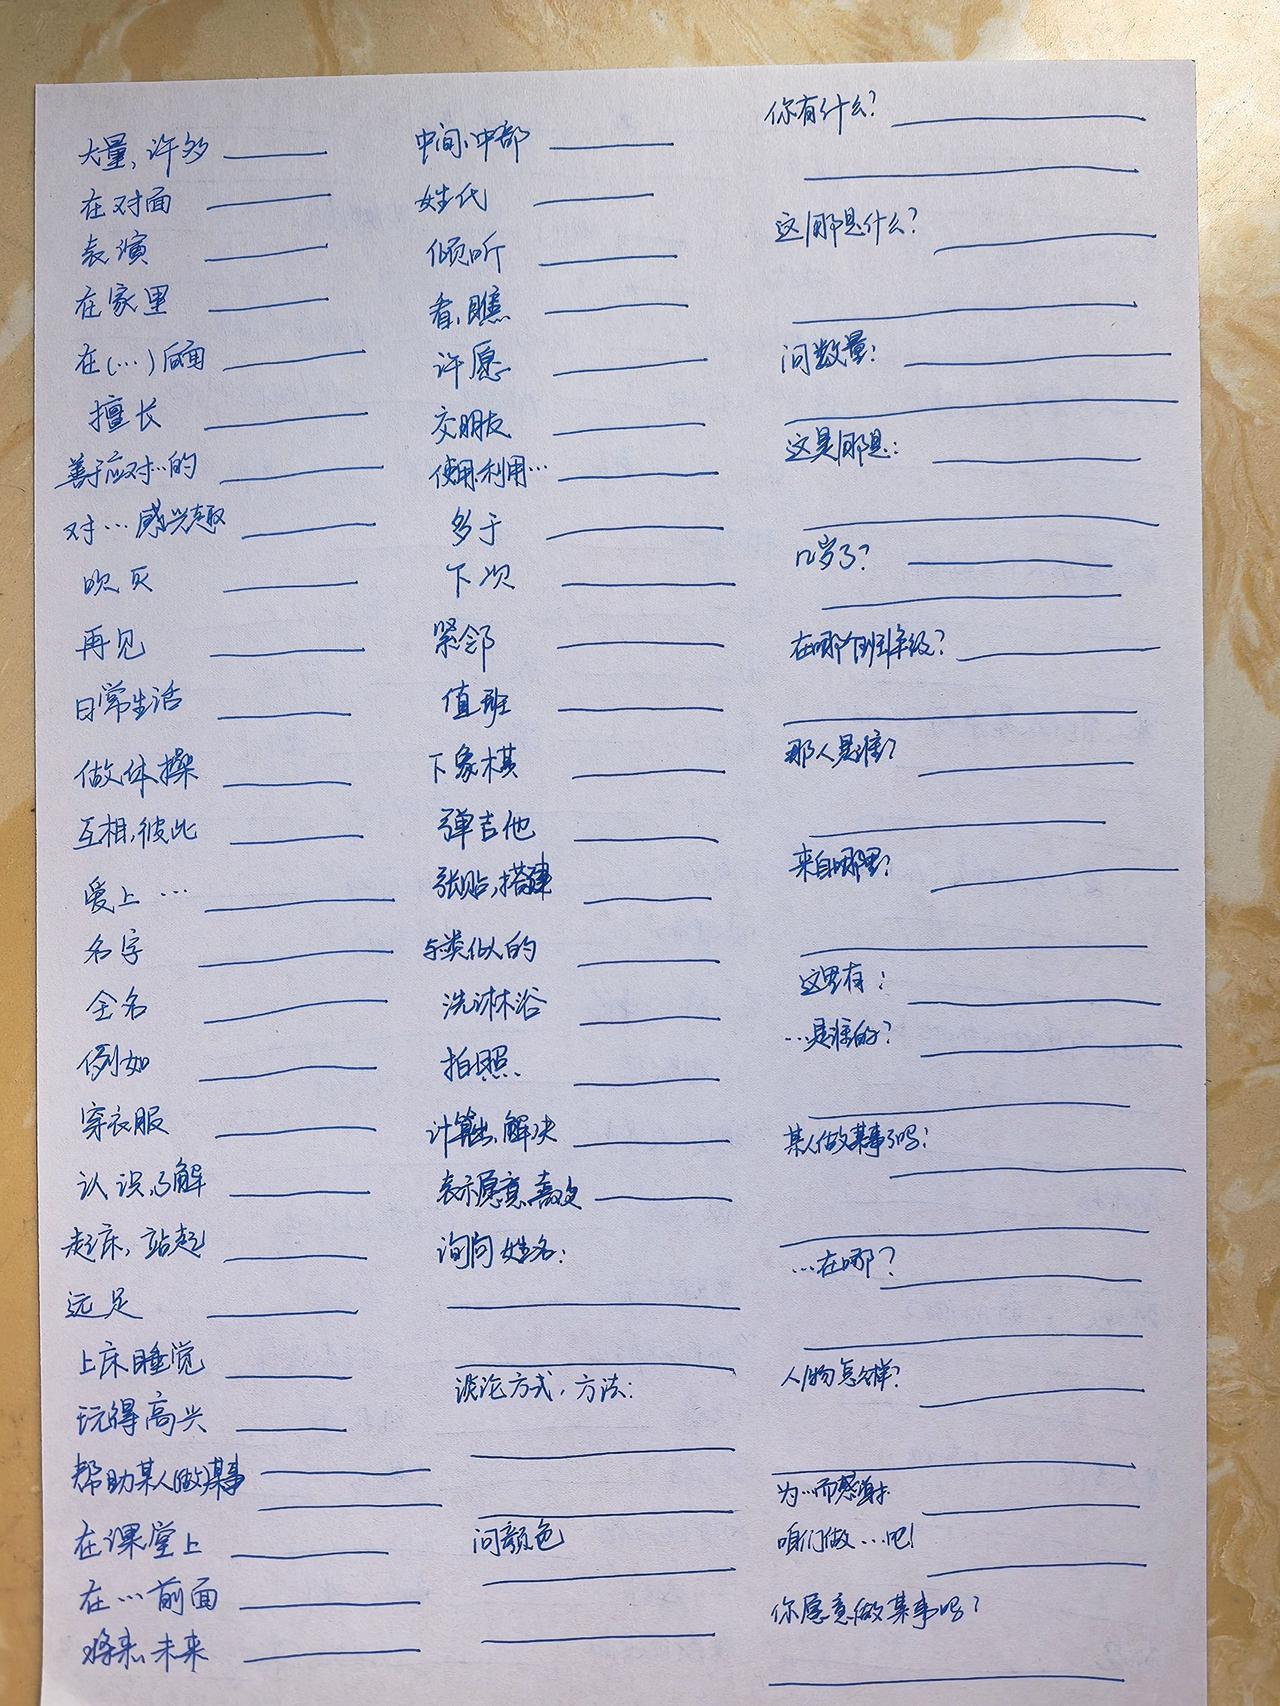 大量,许多
在对面
表演
在家里
在(…)后面
擅长
善于应对…的
对…感兴趣
吹灭
再见
日常生活
做体操
互相,彼此
爱上…
名字
全名
例如
穿衣服
认识,了解
起床,站起
远足
上床睡觉
玩得高兴
帮助某人(做)某事
在课堂上
在…前面
将来、未来
中间、中部
姓氏
倾听
看、瞧
许愿
交朋友
使用、利用…
多于
下次
紧邻
值班
下象棋
弹吉他
张贴,搭建
与类似的
洗淋浴
拍照
计算出、解决
表示愿意、喜欢
询问姓名:
谈论方式、方法:
问颜色
你有什么?
这/那是什么?
问数量:
这是/那是:
几岁了?
在哪个班/年级?
那人是谁?
来自哪里:
这里有:
…是谁的?
某人做某事了吗:
…在哪?
人/物怎么样?
为…而感谢
咱们做…吧!
你愿意做某事吗?